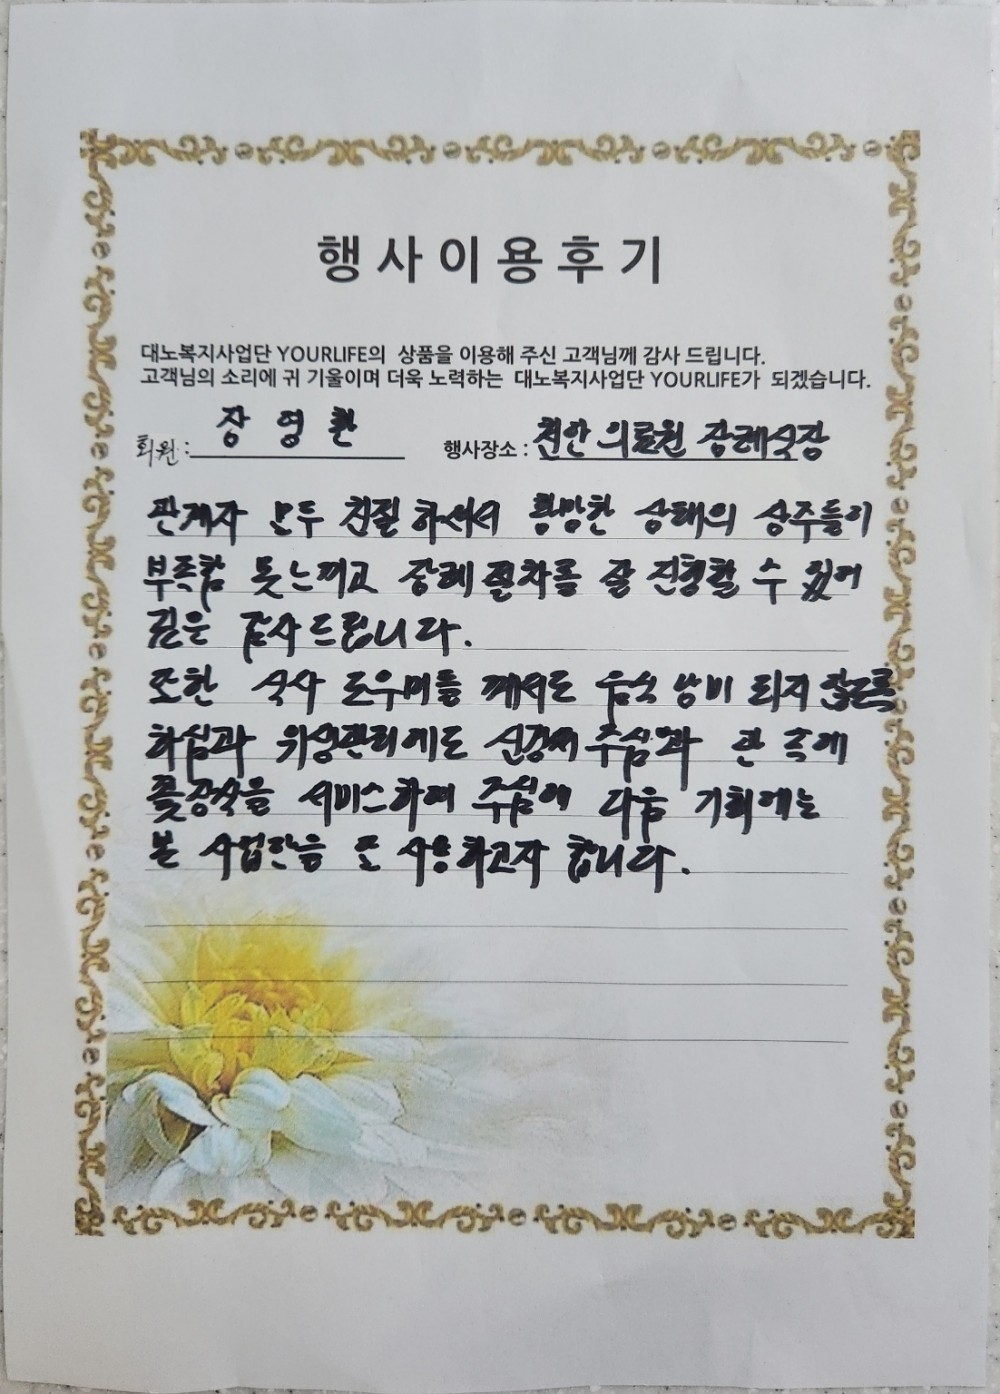 행사이용후기
대노복지사업단 YOURLIFE의 상품을 이용해 주신 고객님께 감사 드립니다.
고객님의 소리에 귀 기울이며 더욱 노력하는 대노복지사업단 YOURLIFE가 되겠습니다.
회원: 장영환 행사장소 : 천안의료원 장례식장
관계자 모두 친절하셔서 황망한 상태의 상주들이
부족함 못느끼고 장례절차를 잘 진행할 수 있어
깊은 감사드립니다.
또한 식사 도우미들 께서도 음식 낭비 되지 않도록
하심과 위생관리에도 신경써 주심과 관 속에
꽃장식을 서비스하여 주심에 다음 기회에는
본 사업단을 또 사용하고자 합니다.